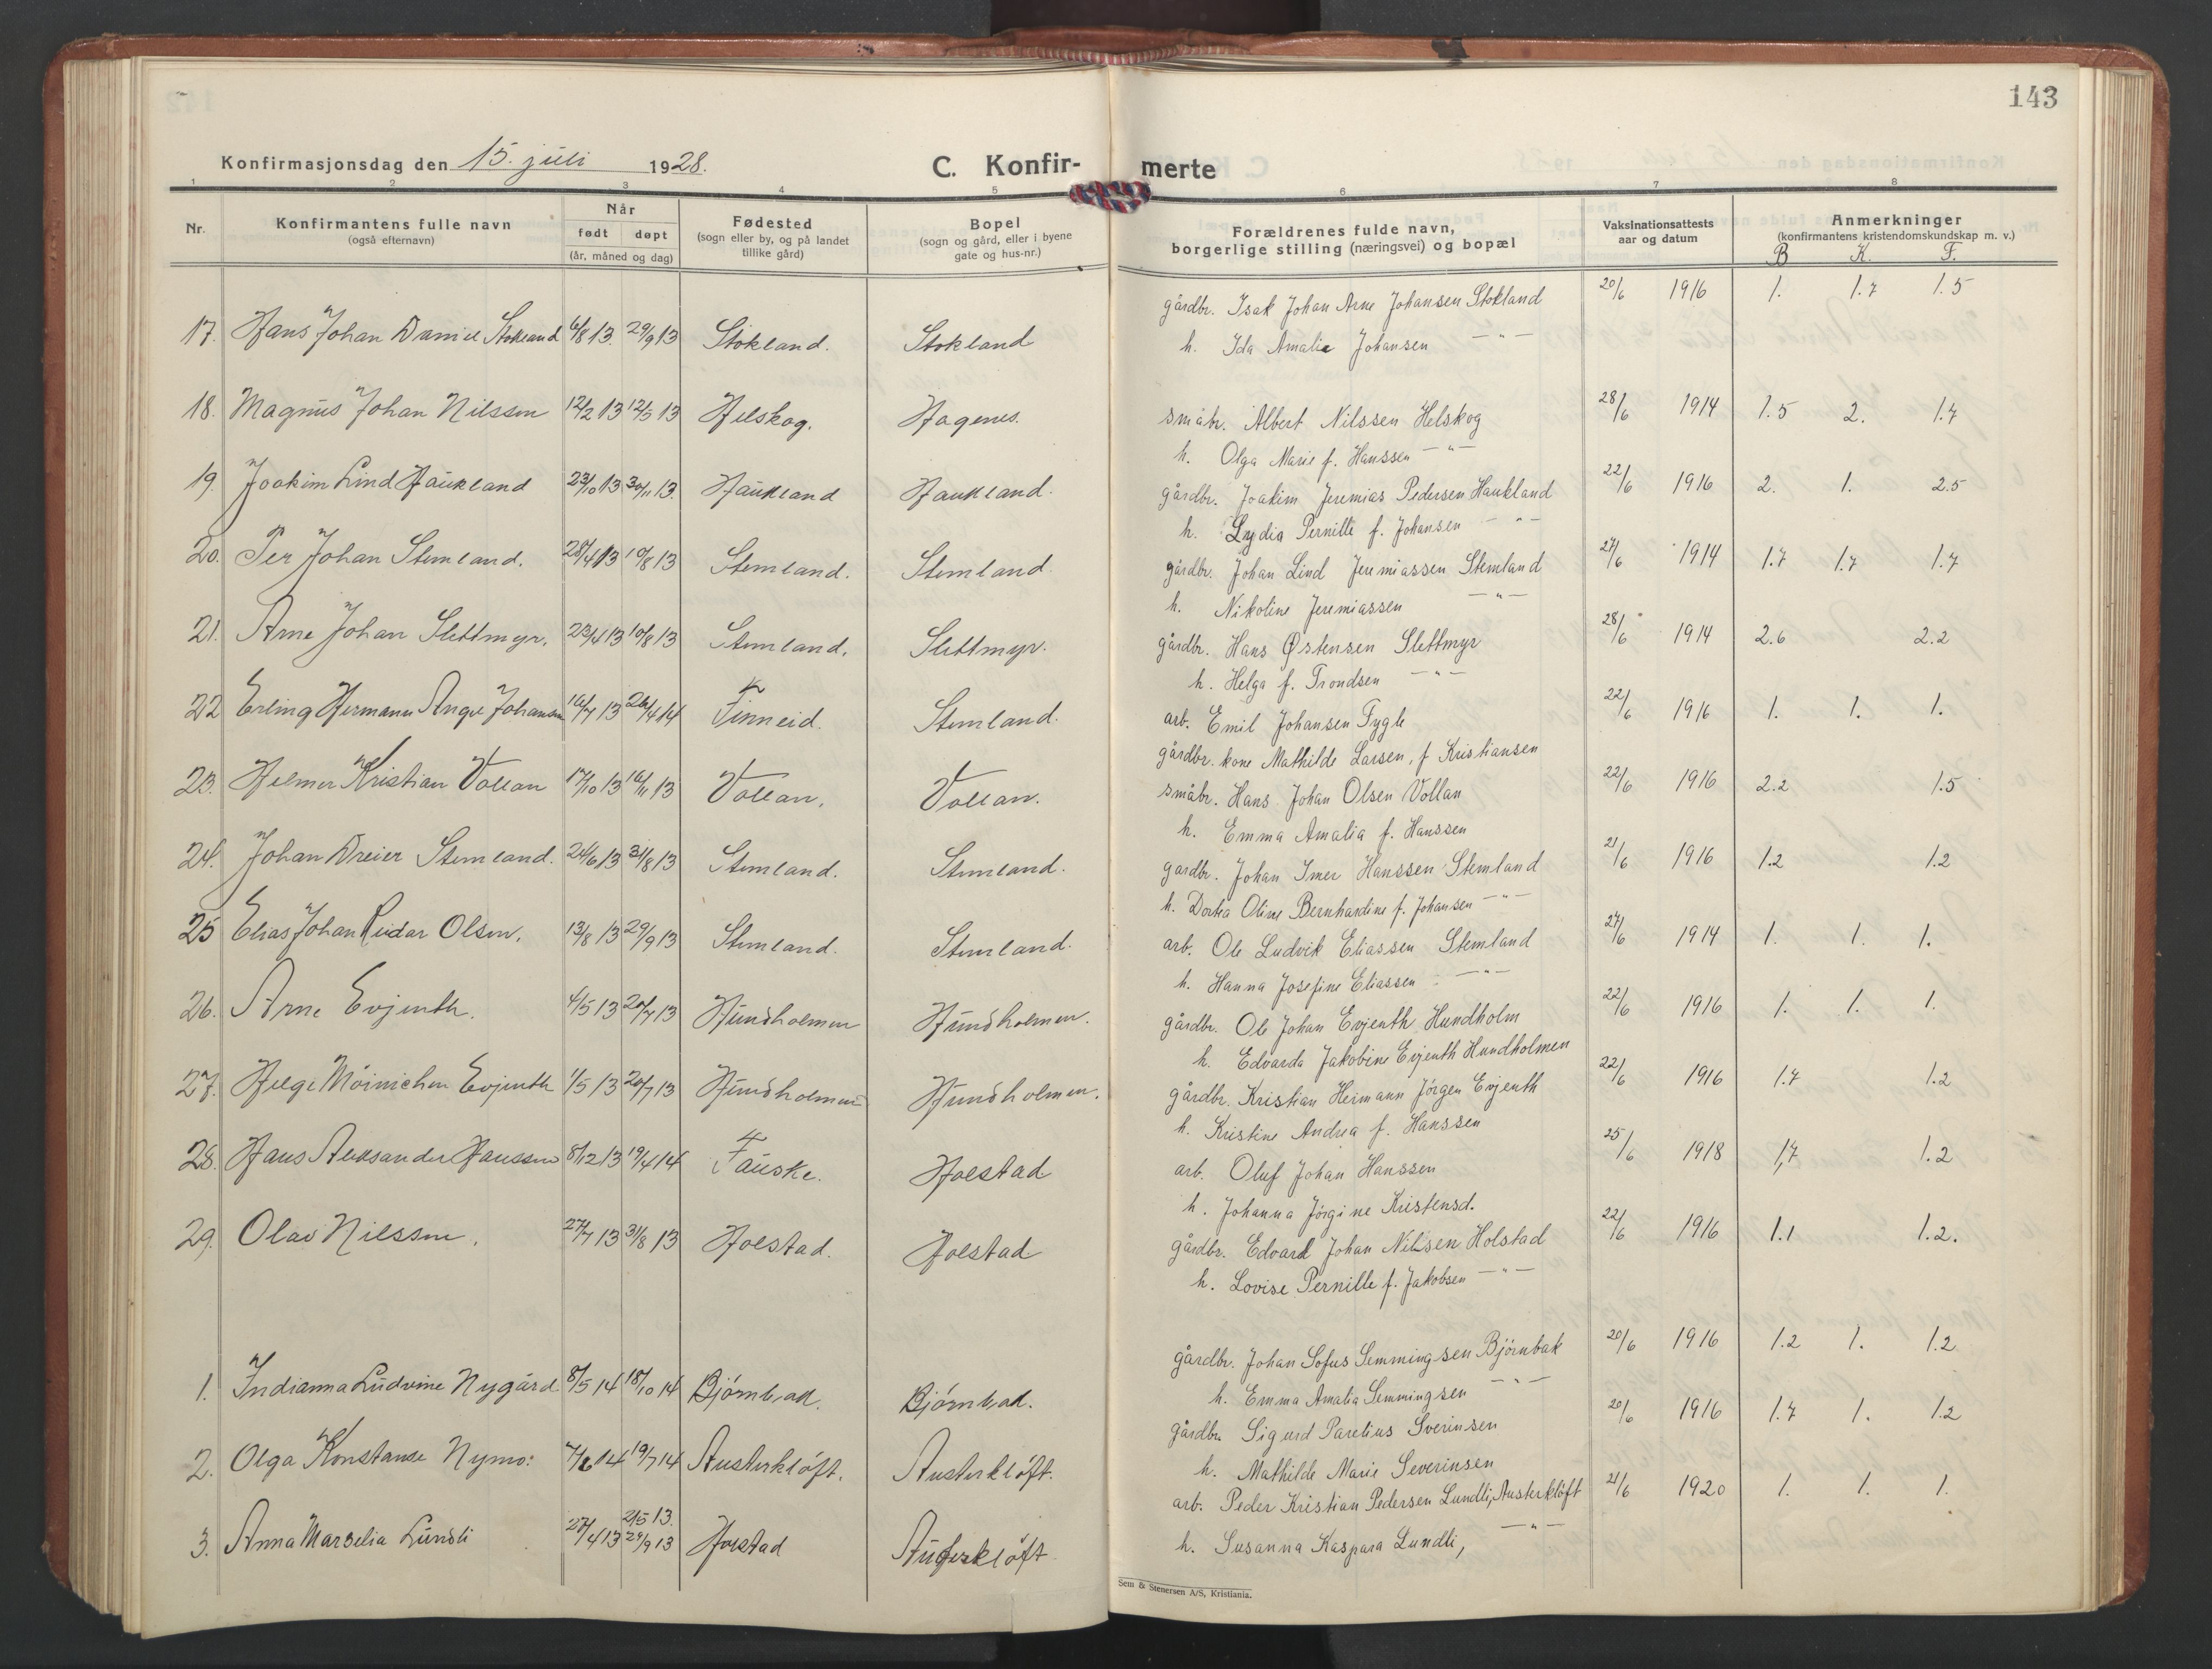 143
Konfirmasjonsdag den 15. juli 1928.
C. Konfir- merte
1 2 3 4 5 6 7 8
Nr.
Konfirmantens fulle navn
(også efternavn)
Når
født døpt
(år, måned og dag)
Fødested
(sogn eller by, og på landet
tillike gård)
Bopel
(sogn og gård, eller i byene
gate og hus-nr.)
Forældrenes fulde navn,
borgerlige stilling (næringsvei) og bopæl
Vaksinationsattests
aar og datum
Anmerkninger
(konfirmantens kristendomskundskap m. v.)
B K. F.
17. Hans Johan Daniel Stokland 6/8 13. 29/9 13 Stokland. Stokland gårdbr. Isak Johan Arne Johansen Stokland 20/6 1916 1. 1.7 1.5
h. Ida Amalie Johansen — " —
18. Magnus Johan Nilssen 12/2 13 12/5 13 Helskog. Hagenes. småbr. Albert Nilssen Helskog 28/6 1914 1.5 2. 1.7
h. Olga Marie f. Hanssen — " —
19. Joakim Lind Haukland 23/10 13 30/11 13. Haukland Haukland. gårdbr. Joakim Jeremias Pedersen Haukland 22/6 1916 2. 1. 2.5
h. Lydia Pernille f. Johansen — " —
20. Per Johan Stemland. 28/4 13 10/8 13 Stemland. Stemland. gårdbr. Johan Lind Jeremiassen Stemland 27/6 1914 1.7 1.7 1.7
h. Nikoline Jeremiassen — " —
21. Arne Johan Slettmyr. 23/4 13 10/8 13 Stemland. Slettmyr. gårdbr. Hans Østensen Slettmyr 28/6 1914 2.6 2.2
h. Helga f. Trondsen — " —
22 Erling Hermann Angel Johansen 16/7 13 26/4 14 Finneid. Stemland. arb. Emil Johansen Fygle 22/6 1916 1. 1. 1.
gårdbr. kone Mathilde Larsen, f Kristiansen
23. Helmer Kristian Vollan 17/10 13 16/11 13 Vollan. Vollan. småbr. Hans Johan Olsen Vollan 22/6 1916 2.2 1.5
h. Emma Amalia f. Hanssen
24. Johan Dreier Stemland. 24/6 13 31/8 13 Stemland. Stemland. gardbr. Johan Imer Hanssen Stemland 21/6 1916 1.2 1.2
h. Dorka Oline Bernhardine f. Johansen — " —
25 Elias Johan Reidar Olsen. 13/8 13 29/9 13 Stemland. Stemland. arb. Ole Ludvik Eliassen Stemland 27/6 1914 1. 1. 1.
h. Hanna Josefine Eliassen — " —
26. Arne Evjenth. 4/5 13 20/7 13 Hundholmen Hundholmen. gårdbr. Ole Johan Evjenth Hundholm 22/6 1916 1. 1. 1.
h. Edvarda Jakobine Evjenth Hundholmen
27. Helge Möinichen Evjenth 1/5 13 20/7 13 Hundholmen Hundholmen. gårdbr. Kristian Hermann Jörgen Evjenth 22/6 1916 1.7 1.2
h. Kristine Andrea f. Hanssen
28. Hans Aleksander Hanssen 8/12 13 19/4 14 Fauske. Holstad arb. Oluf Johan Hanssen 25/6 1918 1,7 1.2
h. Johanna Jörgine Kristensd.
29. Olav Nilssen. 27/7 13 31/8 13 Holstad. Holstad gårdbr. Edvard Johan Nilsen Holstad 22/6 1916 1.1 1.2.
h. Lovise Pernille f. Jakobsen — " —
1. Indianna Ludvine Nygård 8/5 14 18/10 14 Bjørnbak. Bjørnbak. gårdbr. Johan Sofus Semmingsen Björnbak 20/6 1916 1.2 1. 1.2
h. Emma Amalia Semmingsen — " —
2. Olga Konstanse Nymo: 7/6 14 19/7 14 Austerkløft. Austerkløft. gårdbr Sigurd Parelius Sverinsen 20/6 1916 1.7 1. 1.2
h. Mathilde Marie Severinsen
3. Anna Marselia Lundli 27/4 13 2/5 13. 29/9 13 Holstad Austerkløft arb. Peder Kristian Pedersen Lundli, Austerklöft 21/6 1920 1. 1. 1.
h. Susanna Kaspara Lundli, — " —
Sem & Stenersen A/S, Kristiania.